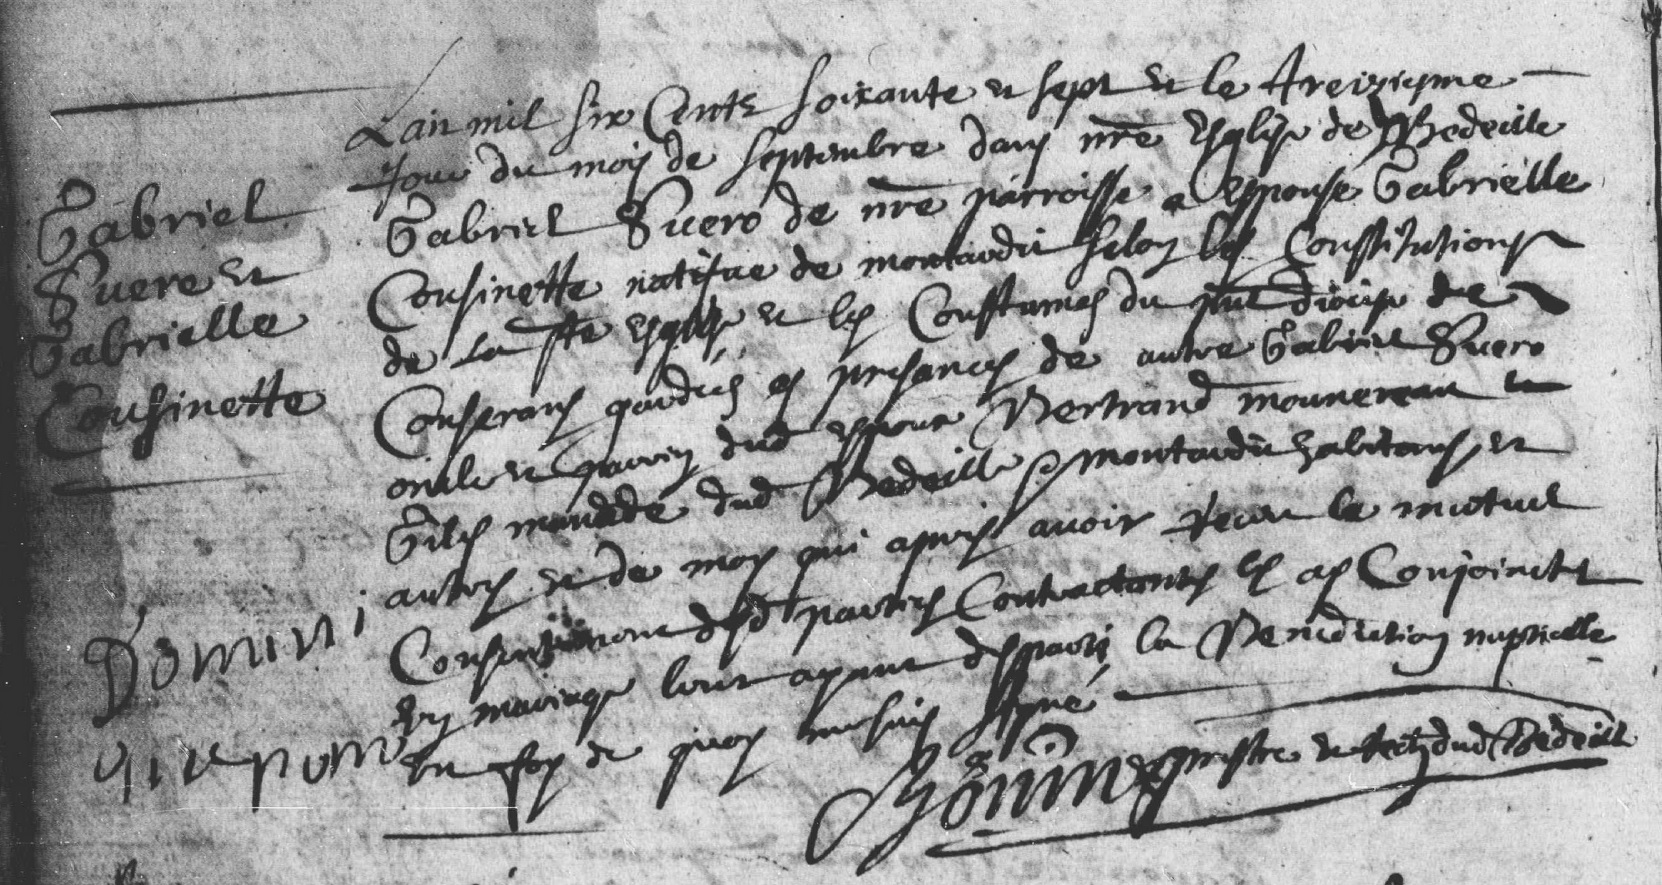 Gabriel
Suere et
Gabrielle
Cousinette
Lan mil six Cents soixante et sept et le treiziesme
Jour du mois de septembre dans nre Esglise de Bedeille
Gabriel Suero de nre parroisse a espousé Gabrielle
Cousinette natifve de montardit selon les Constitutions
de La ste Esglise et les Coustumes du pnt diocese de
Conserans gardées es presances de autre Gabriel Suero
oncle et parrin dud espoux Bertrand mounereau et
Gilis dud Bedeille montardit habitans, et
autres et de moy qui apres avoir receu le mutuel
Consentement desd parties Contractantes les ay Conjoincts
En mariage leur ayant desparti la Benediction nuptialle
En foy de quoy me suis signé
prestre et rect dud Bedeille